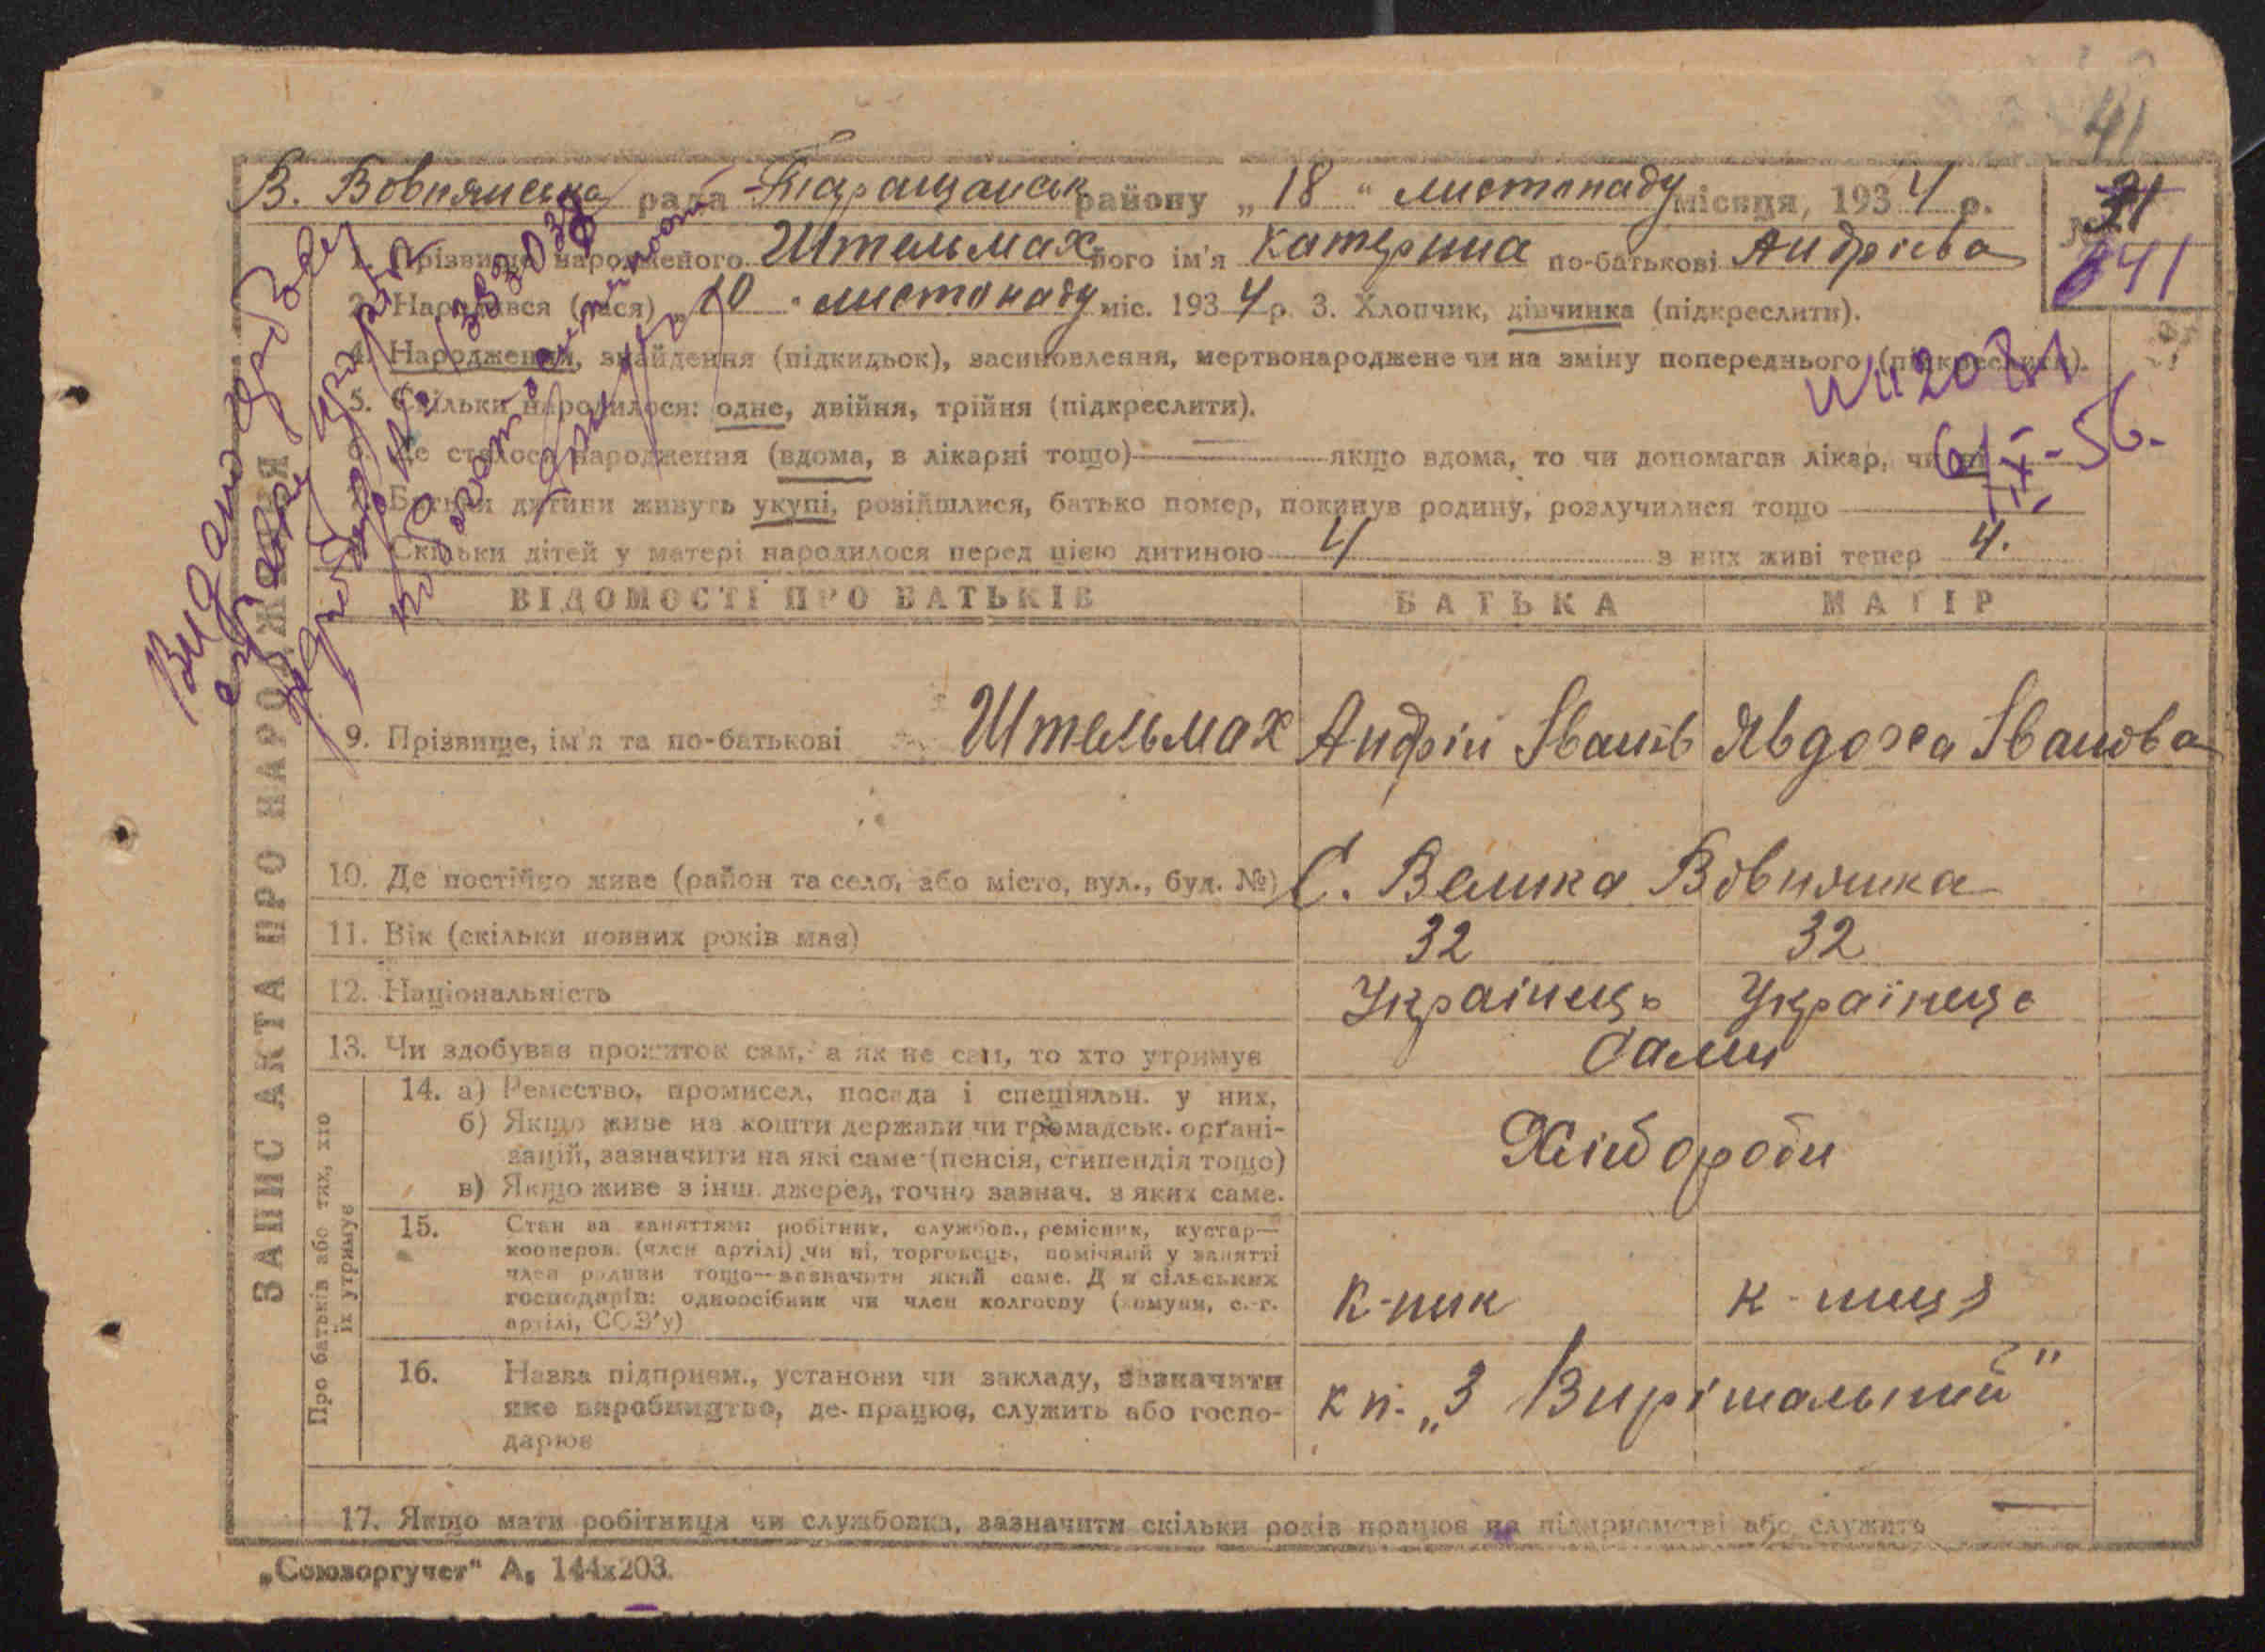 41
В. Вовнянська рада Таращанськ району „18“ листопаду місяця, 1934 р.
31
641
1. Прізвище народженого Штельмах його ім'я Катерина по-батькові Андрієва
2. Народився (лася) „10“ листопаду міс. 1934 р. 3. Хлопчик, дівчинка (підкреслити).
4. Народження, знайдення (підкидьок), засиновлення, мертвонароджене чи на зміну попереднього (підкреслити).
5. Скільки народилося: одне, двійня, трійня (підкреслити).
6/IX-56.
Де сталося народження (вдома, в лікарні тощо) — якщо вдома, то чи допомагав лікар, чи ні
Батьки дитини живуть укупі, розійшлися, батько помер, покинув родину, розлучилися тощо —
Скільки дітей у матері народилося перед цією дитиною 4 з них живі тепер 4.
Видано
ЗАПИС АКТА ПРО НАРОДЖЕННЯ
ВІДОМОСТІ ПРО БАТЬКІВ БАТЬКА МАТІР
9. Прізвище, ім'я та по-батькові Штельмах Андрій Іванів Явдоха Іванова
10. Де постійно живе (район та село, або місто, вул., буд. №) С. Велика Вовнянка
11. Вік (скільки повних років має) 32 32
12. Національність Українець Українець
13. Чи здобував прожиток сам, а як не сам, то хто утримує Сами
Про батьків або тих, хто їх утримує
14. а) Ремество, промисел, посада і спеціяльн. у них,
б) Якщо живе на кошти держави чи громадськ. орґані-
зацій, зазначити на які саме (пенсія, стипендія тощо)
в) Якщо живе з інш. джерел, точно зазнач. з яких саме.
Хлібороби
15. Стан за заняттям: робітник, службов., ремісник, кустар—
кооперов. (член артілі) чи ні, торговець, помічний у занятті
член родини тощо—зазначити який саме. Для сільських
господарів: одноосібник чи член колгоспу (комуни, с.-г.
артілі, СОЗ'у)
к-ник к-ниця
16. Назва підприєм., установи чи закладу, зазначити
яке виробництво, де працює, служить або госпо-
дарює
кп. „3 Вирішальний“
17. Якщо мати робітниця чи службовка, зазначити скільки років працює на підприємстві або служить —
„Союзоргучет“ А₅ 144х203.